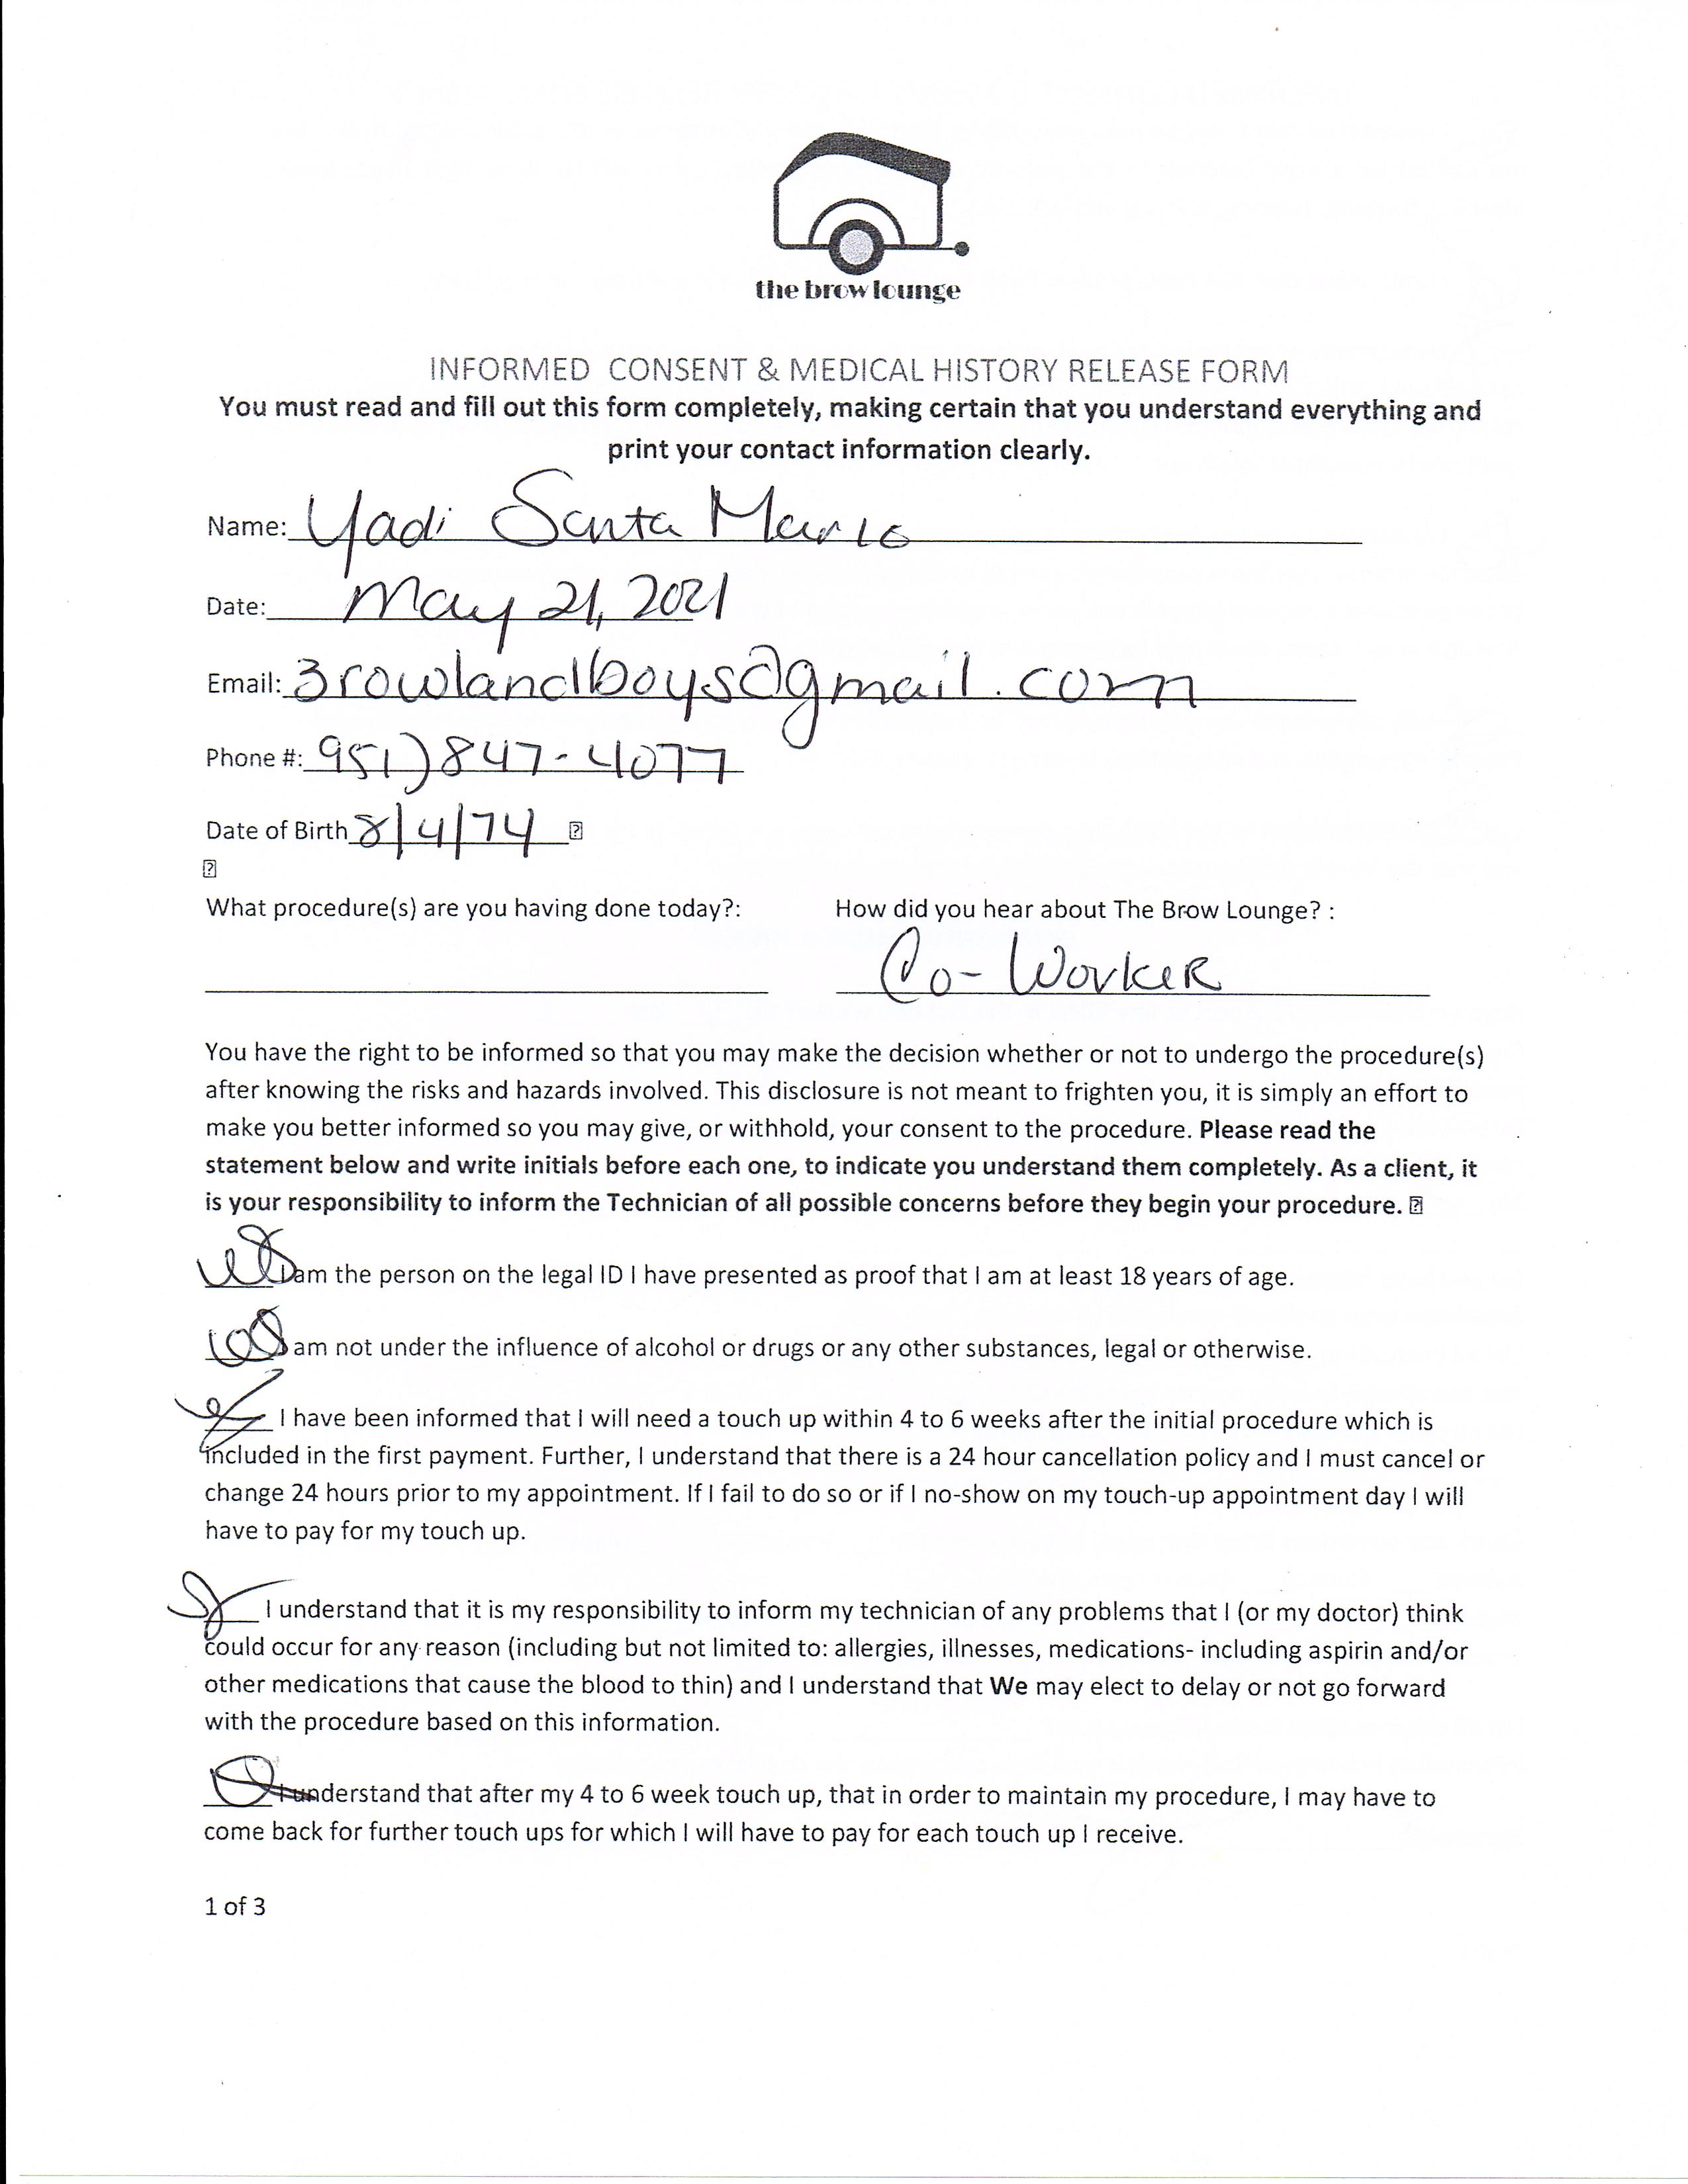 the brow lounge
INFORMED CONSENT & MEDICAL HISTORY RELEASE FORM
You must read and fill out this form completely, making certain that you understand everything and
print your contact information clearly.
Name: Yadi Santa Maria
Date: May 21, 2021
Email: 3rowlandboys@gmail.com
Phone #: 951) 847-4077
Date of Birth 8/4/74
What procedure(s) are you having done today?: How did you hear about The Brow Lounge? :
Co-Worker
You have the right to be informed so that you may make the decision whether or not to undergo the procedure(s)
after knowing the risks and hazards involved. This disclosure is not meant to frighten you, it is simply an effort to
make you better informed so you may give, or withhold, your consent to the procedure. Please read the
statement below and write initials before each one, to indicate you understand them completely. As a client, it
is your responsibility to inform the Technician of all possible concerns before they begin your procedure.
I am the person on the legal ID I have presented as proof that I am at least 18 years of age.
I am not under the influence of alcohol or drugs or any other substances, legal or otherwise.
I have been informed that I will need a touch up within 4 to 6 weeks after the initial procedure which is
included in the first payment. Further, I understand that there is a 24 hour cancellation policy and I must cancel or
change 24 hours prior to my appointment. If I fail to do so or if I no-show on my touch-up appointment day I will
have to pay for my touch up.
I understand that it is my responsibility to inform my technician of any problems that I (or my doctor) think
could occur for any reason (including but not limited to: allergies, illnesses, medications- including aspirin and/or
other medications that cause the blood to thin) and I understand that We may elect to delay or not go forward
with the procedure based on this information.
I understand that after my 4 to 6 week touch up, that in order to maintain my procedure, I may have to
come back for further touch ups for which I will have to pay for each touch up I receive.
1 of 3